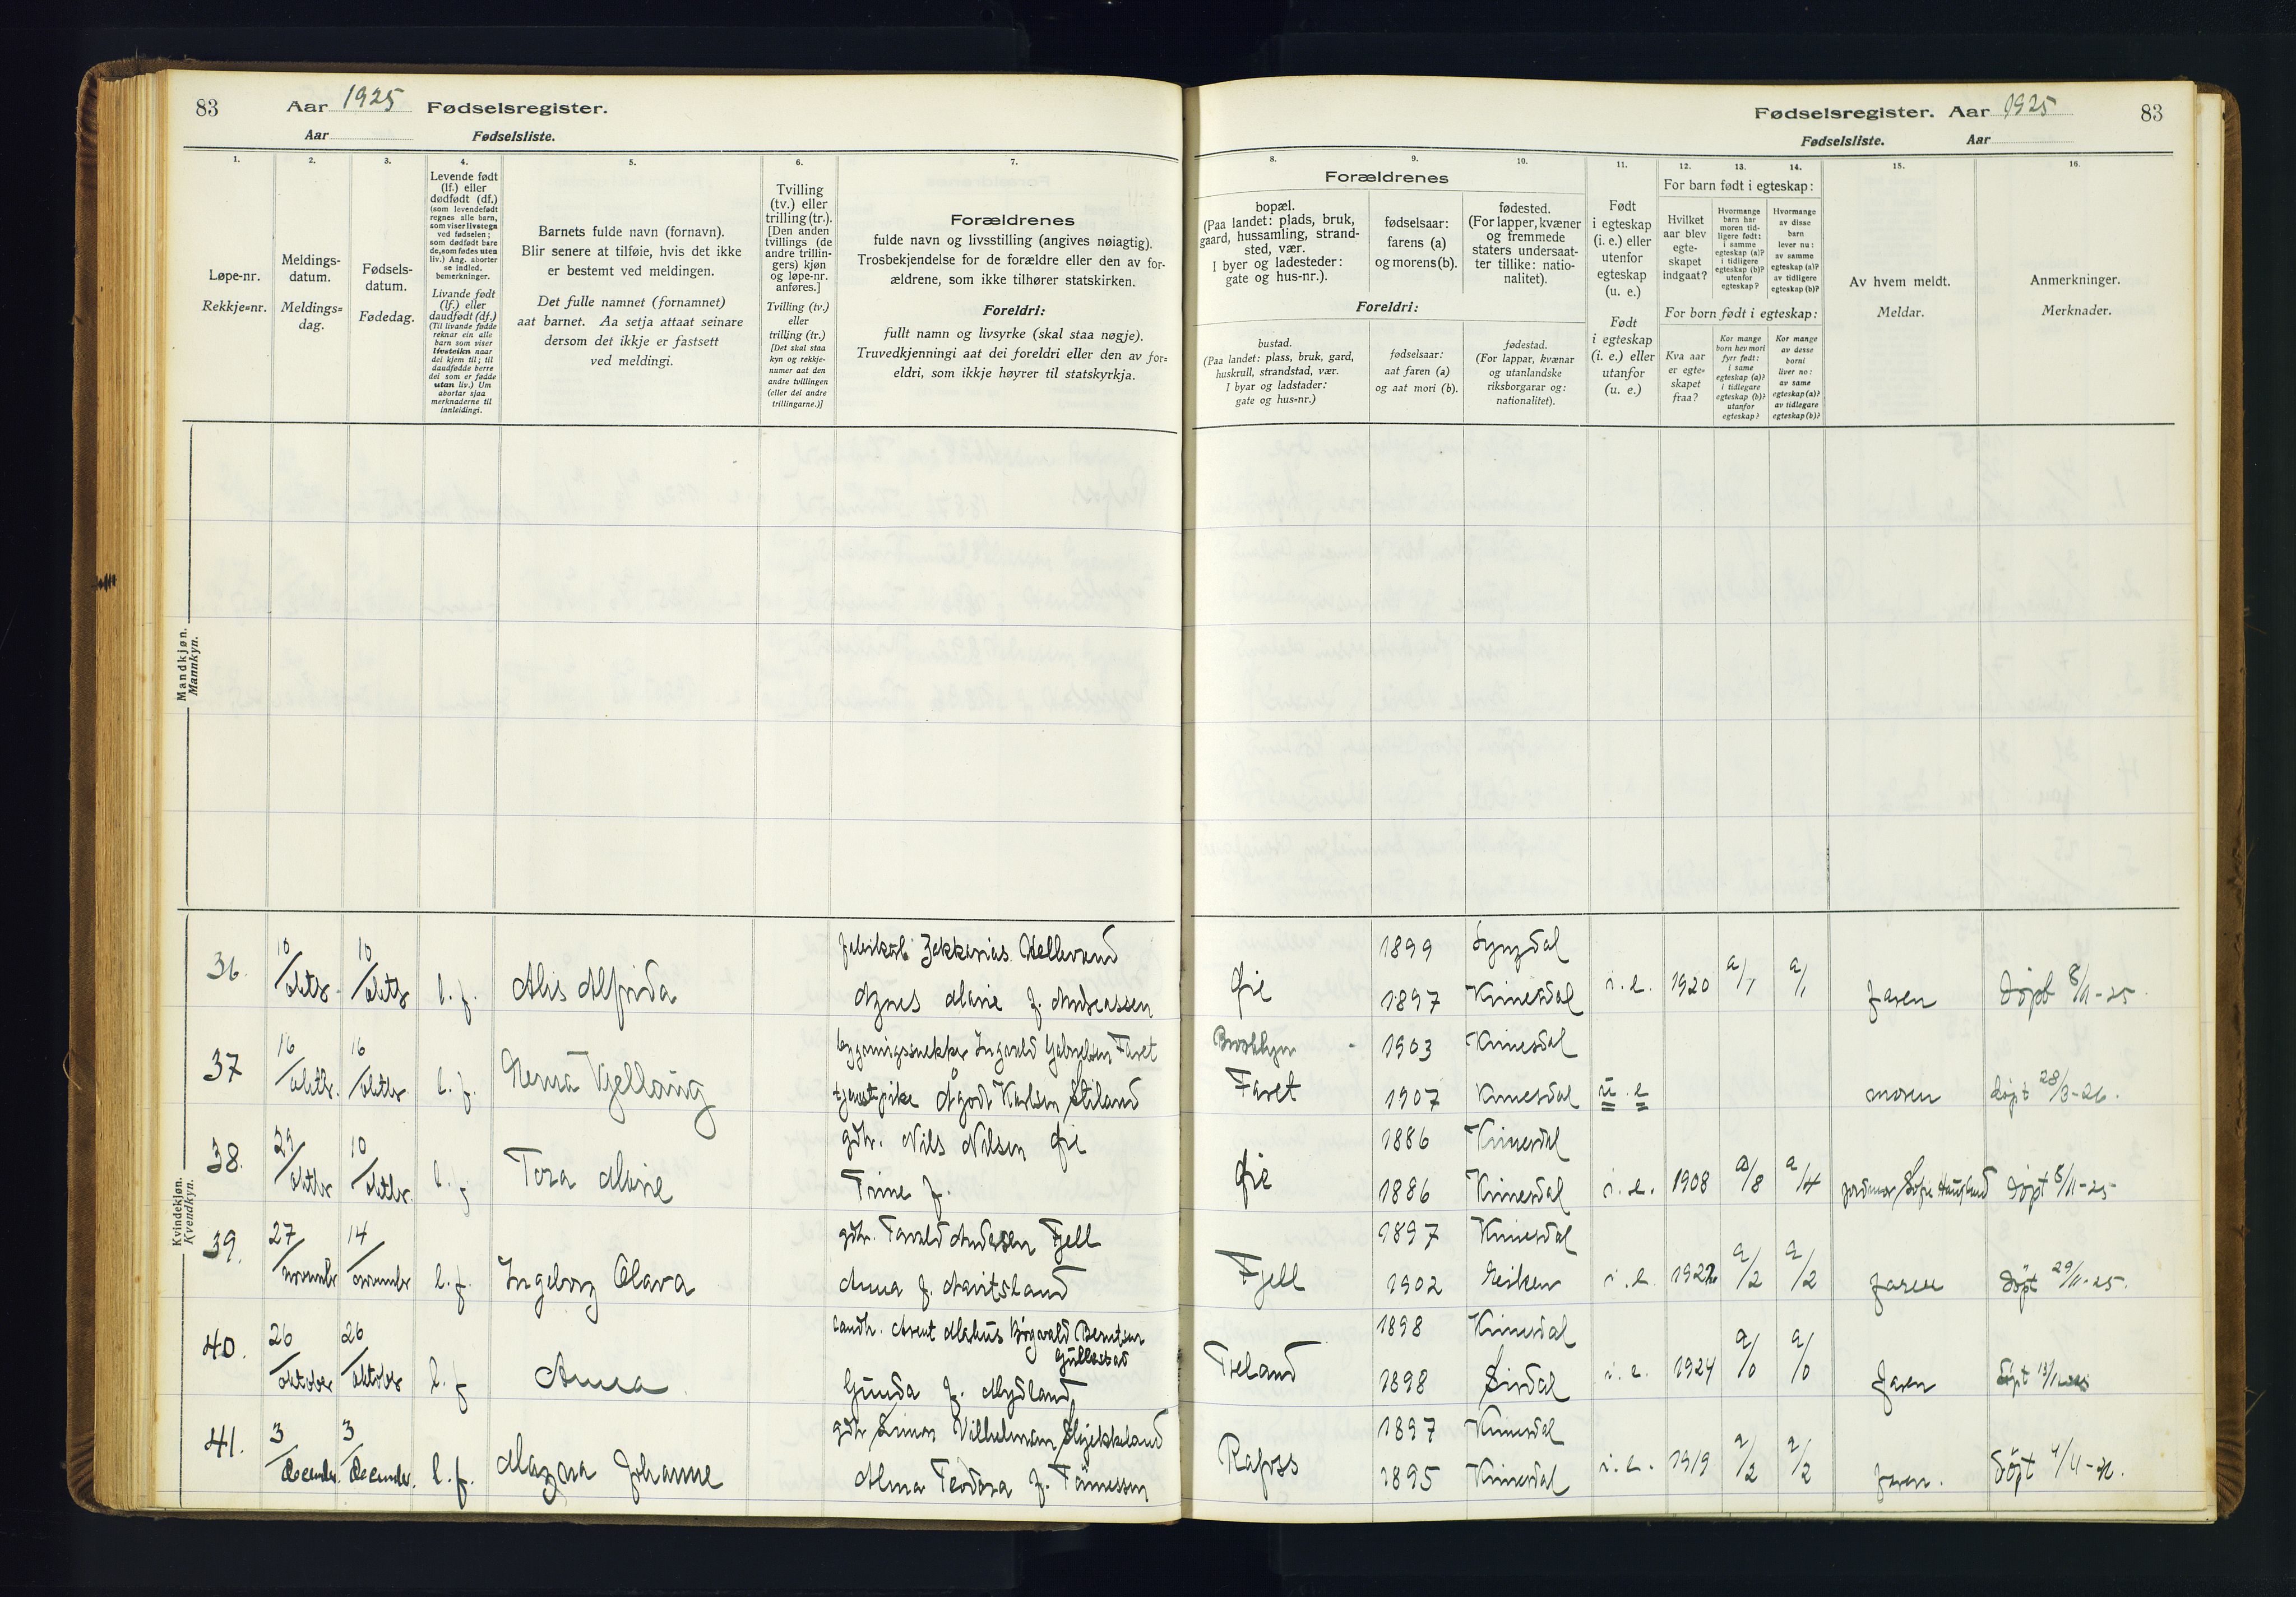 83 Aar 1925 Fødselsregister.
Aar Fødselsliste.
Fødselsregister. Aar 1925 83
Fødselsliste. Aar
1. 2. 3. 4. 5. 6. 7.
Løpe-nr.
Rekkje=nr.
Meldings-
datum.
Meldings=
dag.
Fødsels-
datum.
Fødedag.
Levende født
(lf.) eller
dødfødt (df.)
(som levendefødt
regnes alle barn,
som viser livstegn
ved fødselen;
som dødfødt bare
de, som fødes uten
liv.) Ang. aborter
se indled.
bemerkninger.
Livande født
(lf.) eller
daudfødt (df.)
(Til livande fødde
reknar ein alle
barn som viser
livsteikn naar
dei kjem til; til
daudfødde berre
dei som er fødde
utan liv.) Um
abortar sjaa
merknaderne til
innleidingi.
Barnets fulde navn (fornavn).
Blir senere at tilføie, hvis det ikke
er bestemt ved meldingen.
Det fulle namnet (fornamnet)
aat barnet. Aa setja attaat seinare
dersom det ikkje er fastsett
ved meldingi.
Tvilling
(tv.) eller
trilling (tr.).
[Den anden
tvillings (de
andre trillin-
gers) kjøn
og løpe-nr.
anføres.]
Tvilling (tv.)
eller
trilling (tr.)
[Det skal staa
kyn og rekkje-
numer aat den
andre tvillingen
(eller dei andre
trillingarne.)]
Forældrenes
fulde navn og livsstilling (angives nøiagtig).
Trosbekjendelse for de forældre eller den av for-
ældrene, som ikke tilhører statskirken.
Foreldri:
fullt namn og livsyrke (skal staa nøgje).
Truvedkjenningi aat dei foreldri eller den av for=
eldri, som ikkje høyrer til statskyrkja.
8. 9. 10. 11. 12. 13. 14. 15. 16.
Forældrenes
bopæl.
(Paa landet: plads, bruk,
gaard, hussamling, strand-
sted, vær.
I byer og ladesteder:
gate og hus-nr.).
fødselsaar:
farens (a)
og morens (b).
fødested.
(For lapper, kvæner
og fremmede
staters undersaat-
ter tillike: natio-
nalitet).
Foreldri:
bustad.
(Paa landet: plass, bruk, gard,
huskrull, strandstad, vær.
I byar og ladstader:
gate og hus=nr.)
fødselsaar:
aat faren (a)
og aat mori (b).
fødestad.
(For lappar, kvænar
og utanlandske
riksborgarar og:
nationalitet).
Født
i egteskap
(i. e.) eller
utenfor
egteskap
(u. e.)
Født
i egteskap
(i. e.) eller
utanfor
(u. e.)
For barn født i egteskap:
Hvilket
aar blev
egte-
skapet
indgaat?
Hvormange
barn har
moren tid-
ligere født:
i samme
egteskap (a)?
i tidligere
egteskap (b)?
utenfor
egteskap?
Hvormange
av disse
barn
lever nu:
av samme
egteskap (a)?
av tidligere
egteskap (b)?
For born født i egteskap:
Kva aar
er egte=
skapet
fraa?
Kor mange
born hev mori
fyrr født:
i same
egteskap (a)?
i tidlegare
egteskap (b)?
utanfor
egteskap?
Kor mange
av desse
borni
liver no:
av same
egteskap (a)?
av tidlegare
egteskap (b)?
Av hvem meldt.
Meldar.
Anmerkninger.
Merknader.
Mandkjøn.
Mannkyn.
Kvindekjøn.
Kvendkyn.
Zakkarias 1899 Lyngdal
36. 10/oktbr. 10/oktbr l. f. Alis Alfrida Agnes Marie f. Andreassen Øie 1897 Kvinesdal i. e. 1920 a/1 a/1 faren døpt 8/11-25.
Ingvald Gabrielsen Faret Brooklyn 1903 Kvinesdal
37 16/oktbr. 16/oktbr l. f. tjenestepike Agodt Karlsen Stiland Faret 1907 Kvinesdal u. e moren døpt 28/3-26.
gdbr. Nils Nilsen Øie 1886 Kvinesdal
38. 29/oktbr 10/oktbr. l. f Tora Marie Trine f. Øie 1886 Kvinesdal i. e. 1908 a/8 a/4 jordmor Sofie Haugland døpt 8/11-25
gdbr. Torvald Andersen Fjell 1897 Kvinesdal
39. 27/november 14/november l. f. Ingeborg Olava Anna f. Mavitsland Fjell 1902 Eiken i. e. 1922 a/2 a/2 faren døpt 29/11-25.
Arent Berntsen 1898 Kvinesdal
Gullestad
40. 26/oktober 26/oktober l. f Anna Gunda f. Mydland Træland 1898 Sirdal i. e. 1924 a/0 a/0 faren døpt
gdbr Vilhelmsen Sljekkeland 1897 Kvinesdal
41. 3/december. 3/december. l. f. Magna Johanne Alma Teodora f. Tønnessen Rafoss 1895 Kvinesdal i. e. 1919 a/2 a/2 faren. døpt